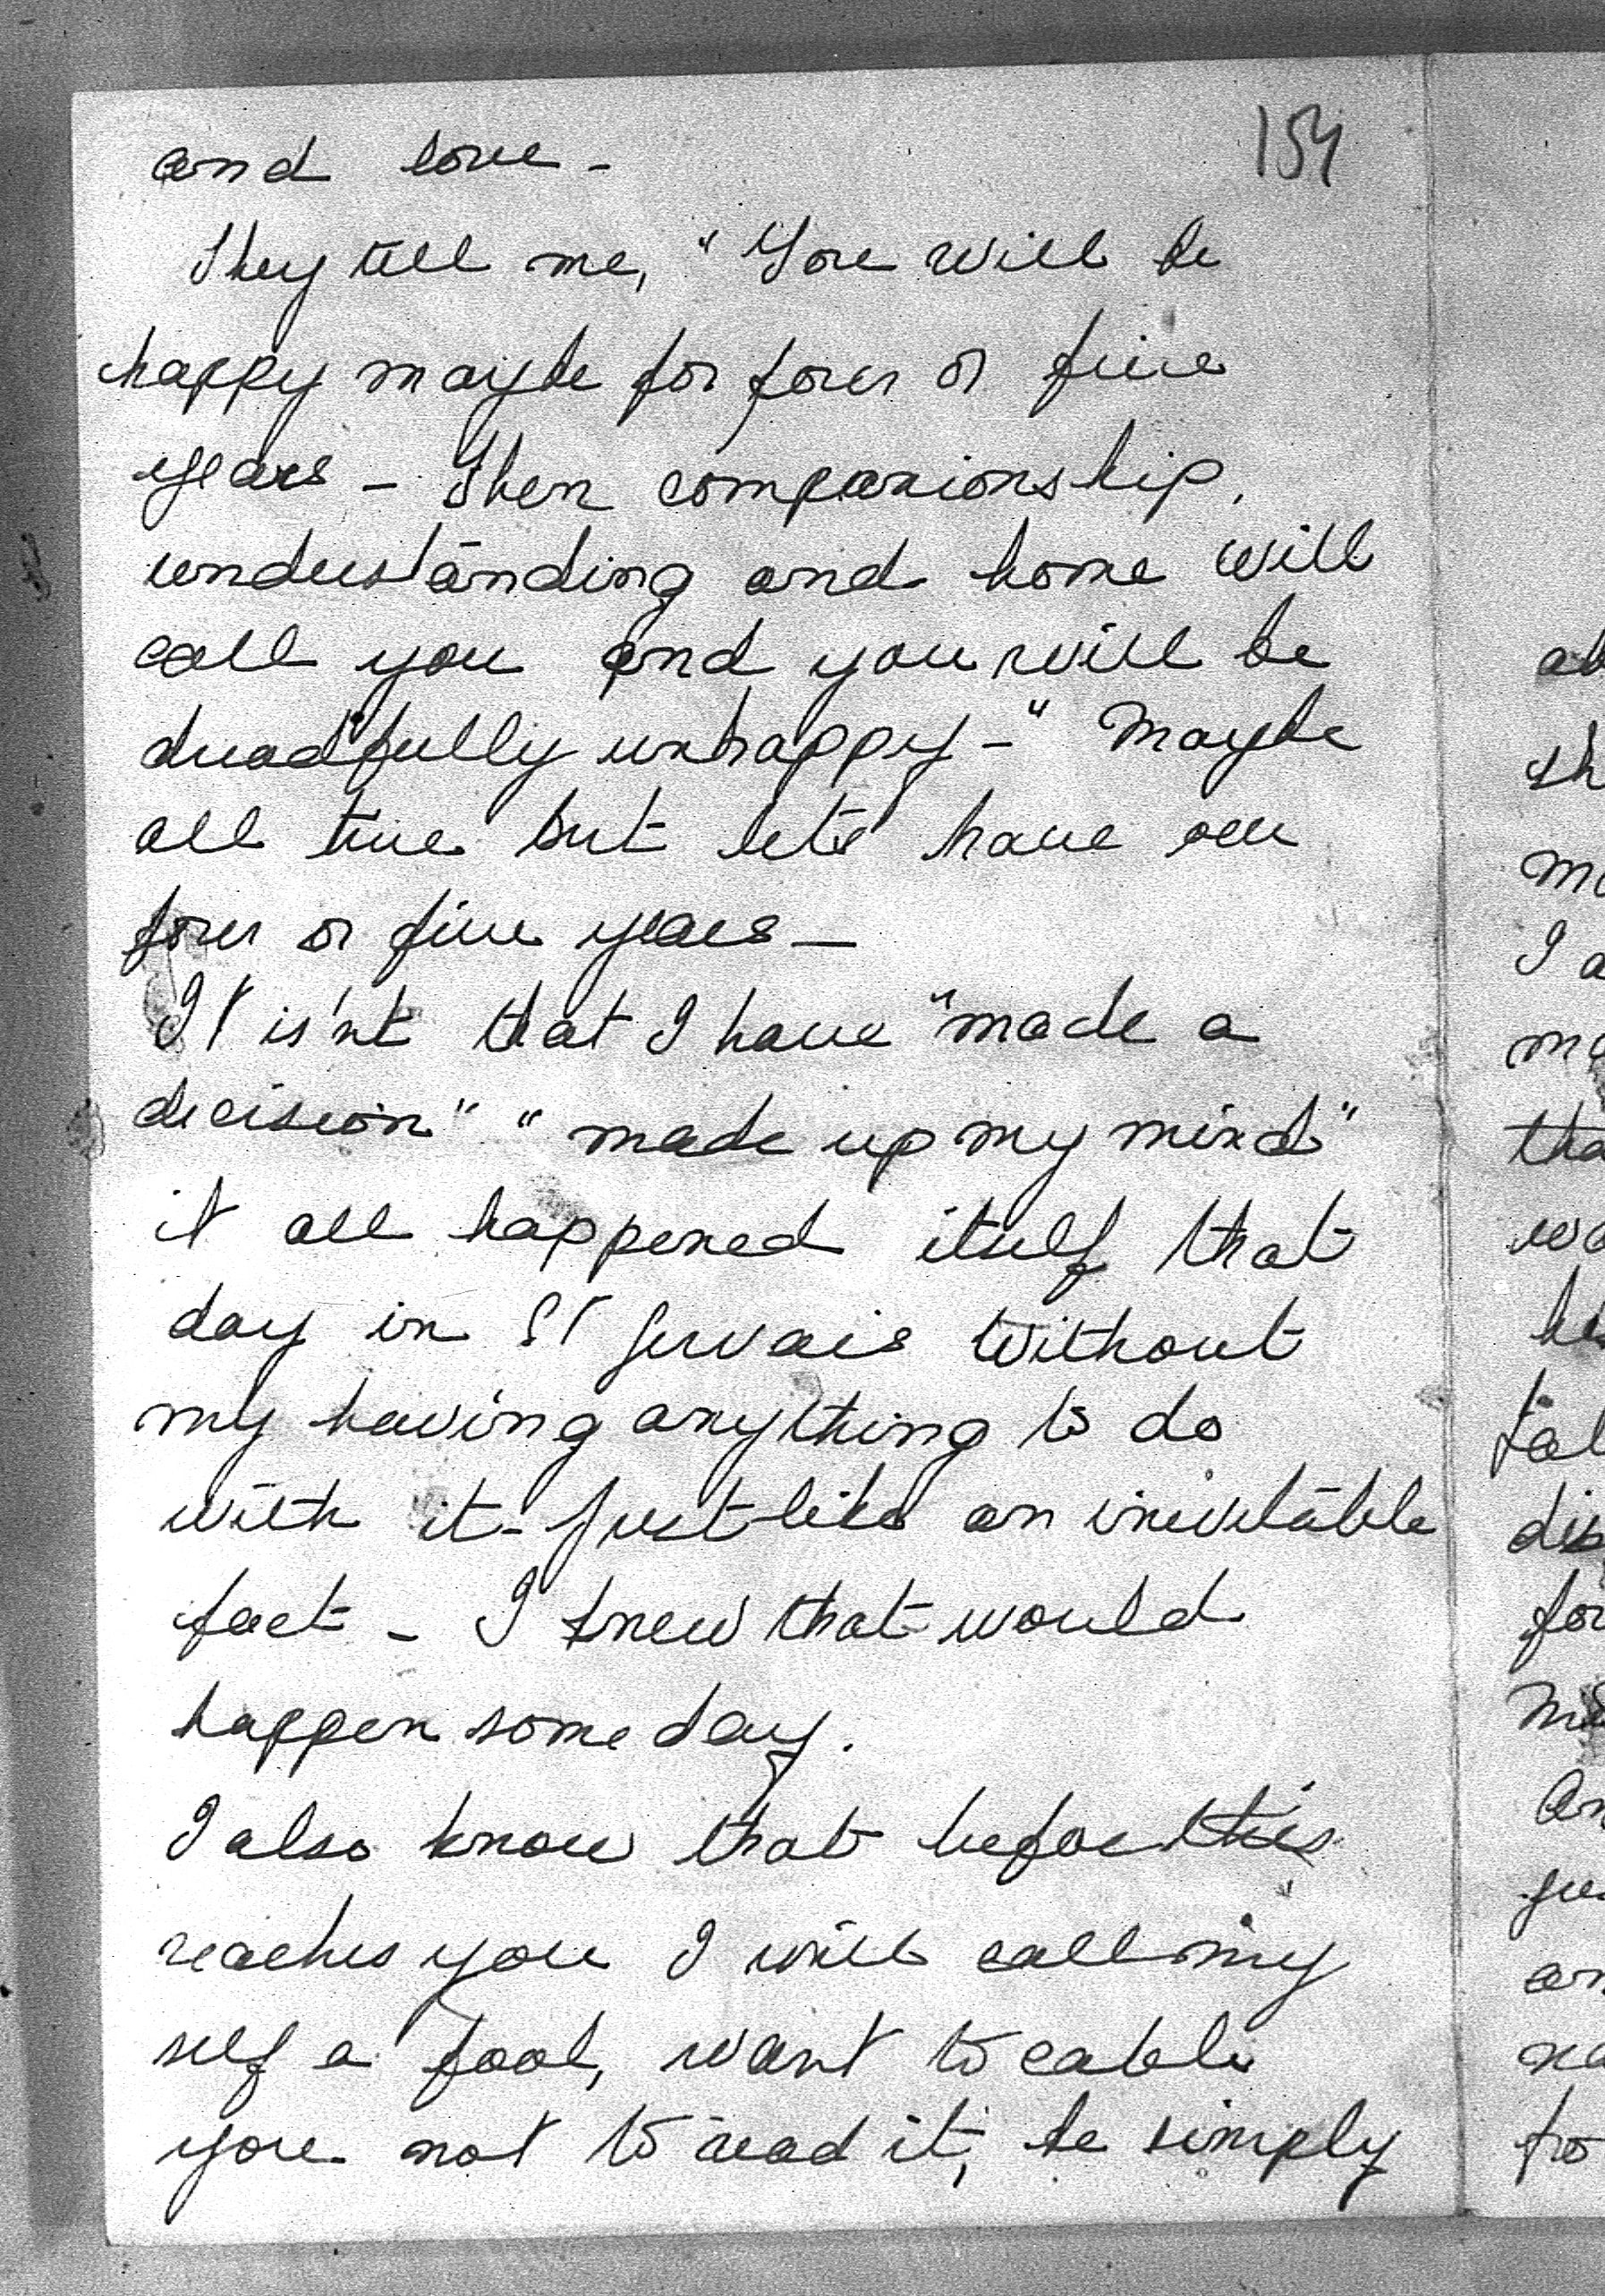 154
and love -
They tell me, "You will be
happy maybe for four or five
years - Then companionship,
understanding and home will
call you and you will be
dreadfully unhappy -" Maybe
all true but let's have our
four or five years -
It is'nt that I have "made a
decision" "made up my mind"
it all happened itself that
day in St Gervais without
my having anything to do
with it - Just like an inevitable
fact - I knew that would
happen some day.
I also know that before this
reaches you I will call my
self a fool, want to cable
you not to read it, be simply